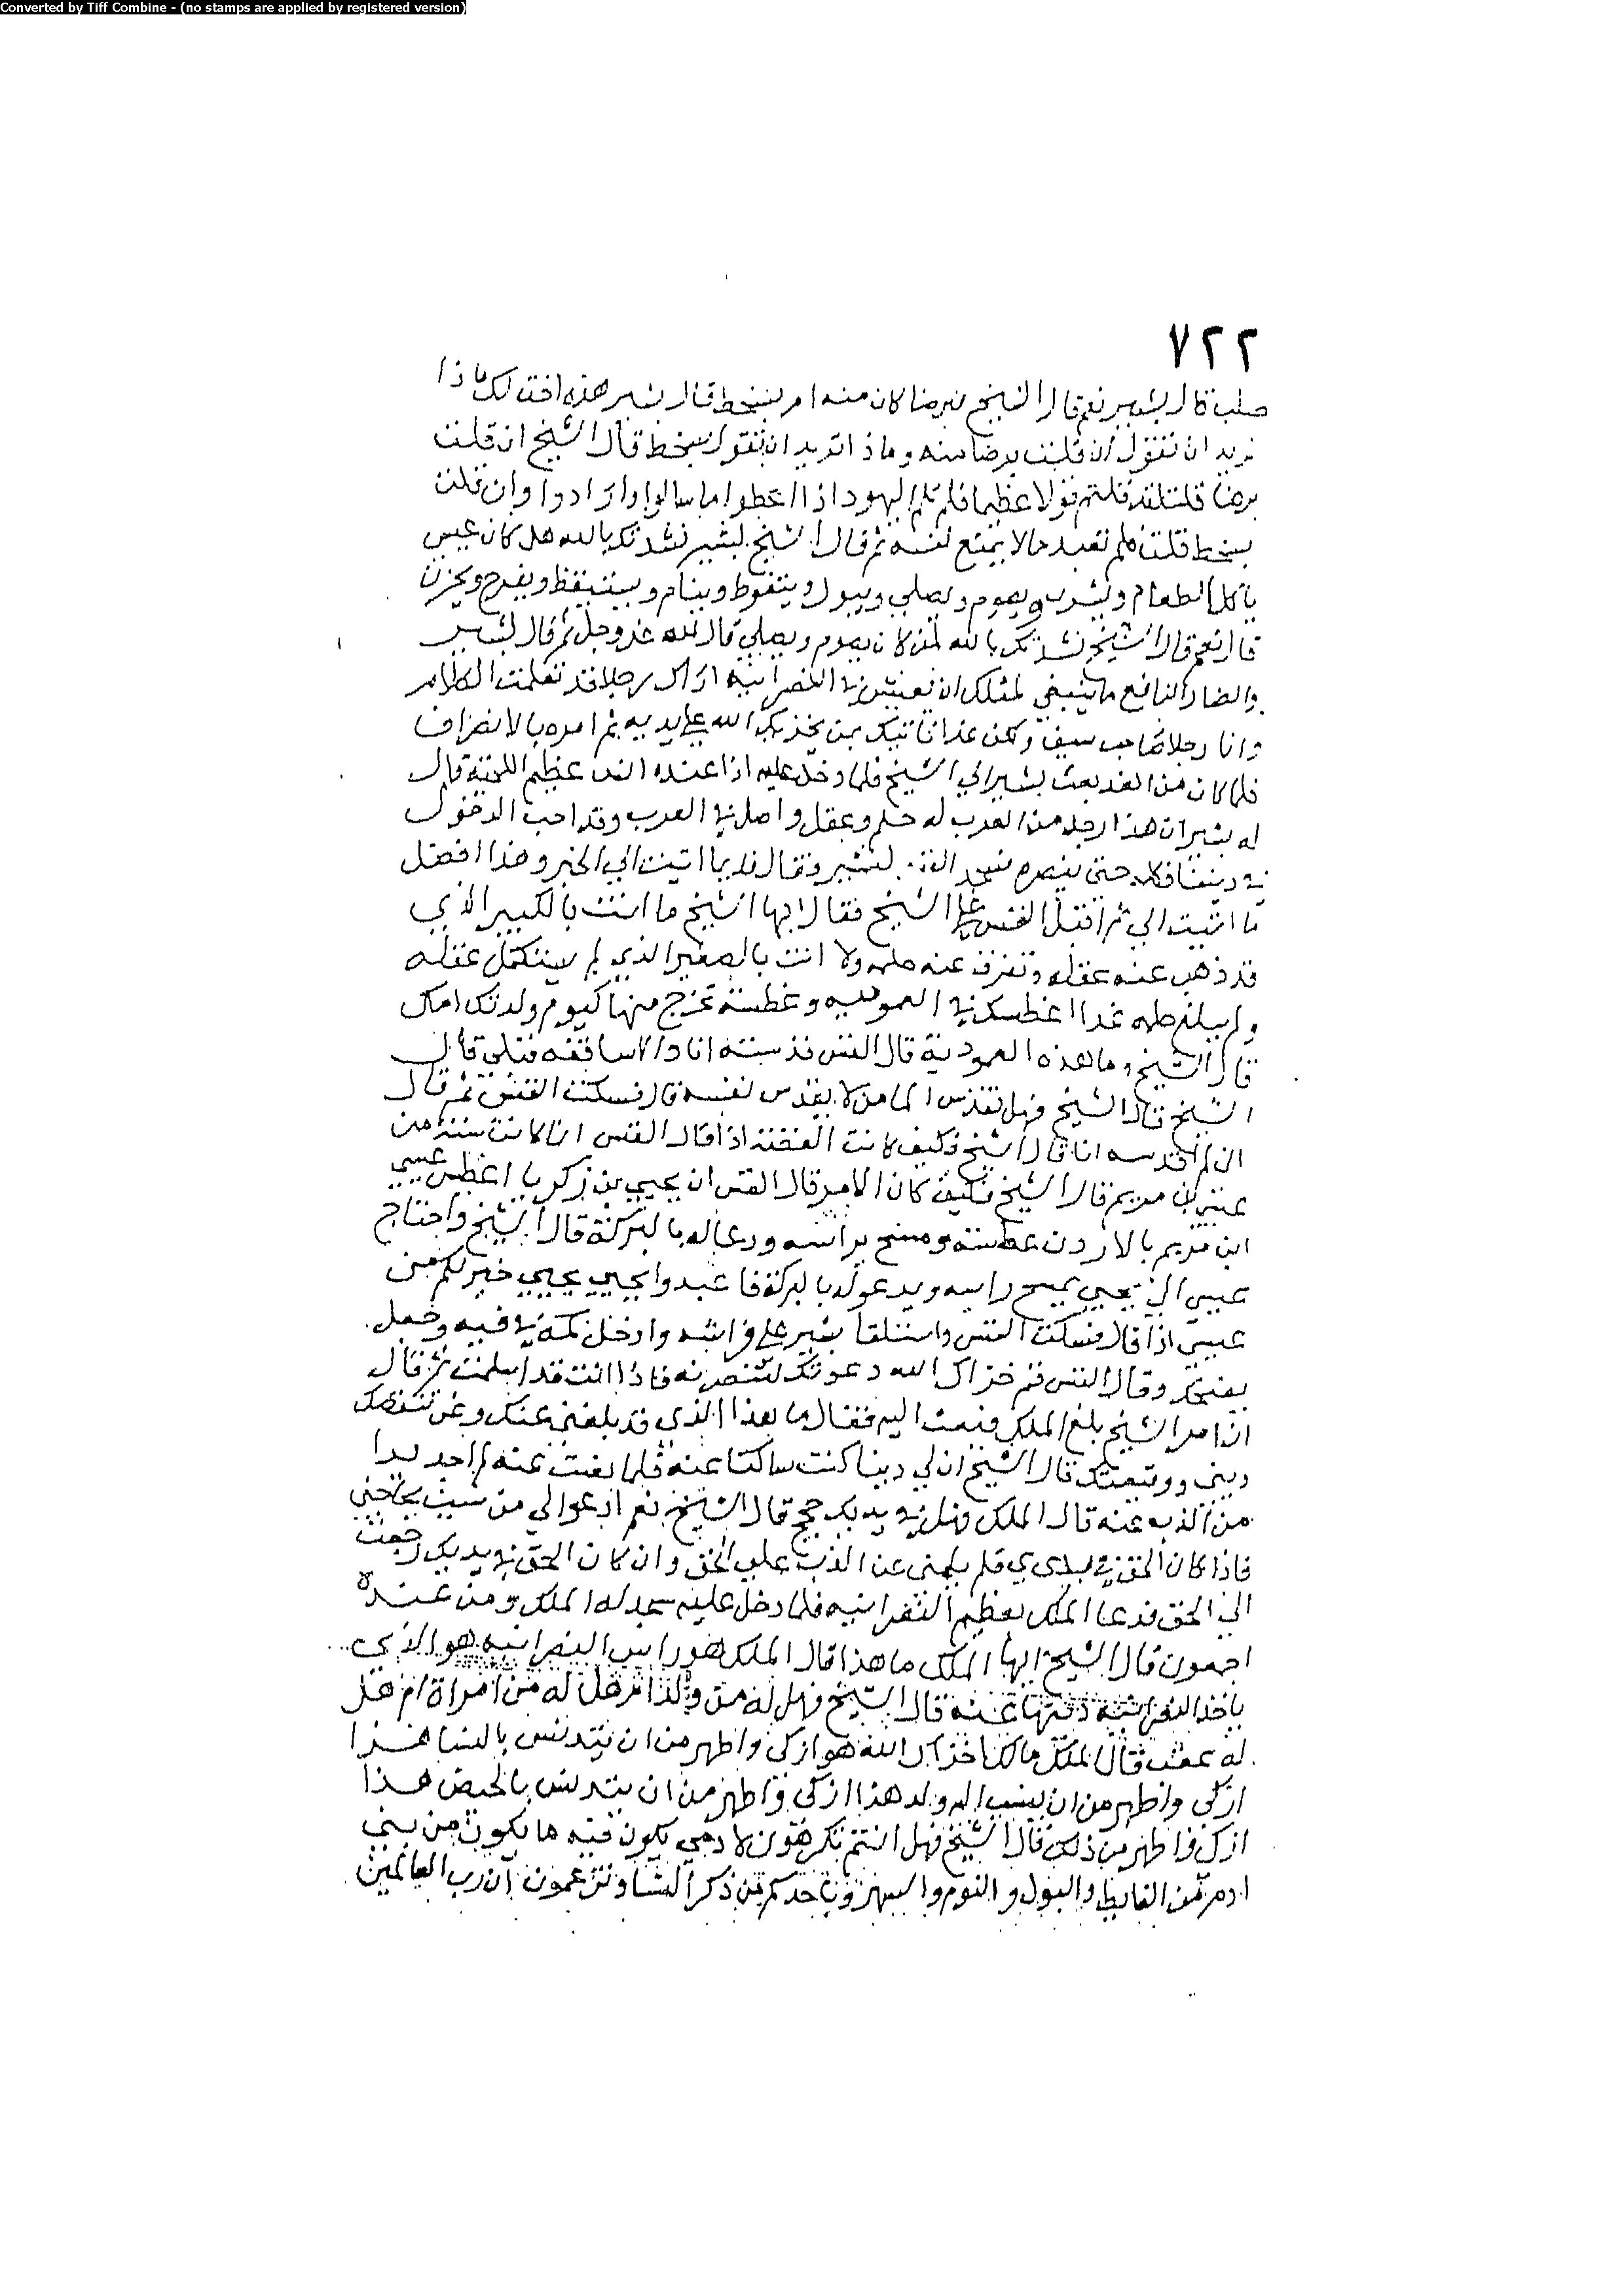 Converted by Tiff Combine - (no stamps are applied by registered version)
٧٢٢
صلب قال بشير نعم قال الشيخ فبرضا كان منه ام بسخط قال بشير هذه اخت لك ماذا
تريد ان نقول ان قلت برضا منه وماذا تريد ان نقول بسخط قال الشيخ ان قلت
برضا قلت لقد قلتم قولا عظيما فلم تلم اليهود اذا اعطوا ما سالوا وارادوا وان قلت
بسخط قلت فلم تعبد ما لا يمنع نفسه ثم قال الشيخ لبشير نشدتك بالله هل كان عيسى
ياكل الطعام ويشرب ويصوم ويصلي ويبول ويتغوط وينام ويستيقظ ويفرح ويحزن
قال نعم قال الشيخ نشدتك بالله لمن كان يصوم ويصلي قال لله عز وجل ثم قال لبشير
والضار النافع ما ينبغي لمثلك ان تعيش في النصرانيه اراك رجلا قد تعلمت الكلام
وانا رجل صاحب سيف ولكن غدا ناتيك بمن يخزيك الله على يديه ثم امره بالانصراف
فلما كان من الغد بعث بشير الي الشيخ فلما دخل عليه اذا عنده القس عظيم اللحية قال
له بشير ان هذا رجل من العرب له حلم وعقل واصل في العرب وقد احب الدخول
في ديننا فكلمه حتى ينصره فسجد القس لبشير وقال قديما اتيت الي الخير وهذا افضل
ما اتيت الي ثم اقبل القس على الشيخ فقال ايها الشيخ ما انت بالكبير الذي
قد ذهب عنه عقله وتفرق عنه حلمه ولا انت بالصغير الذي لم يستكمل عقله
ولم يبلغ حلمه غدا اغطسك في المعموديه وغطسة تخرج منها كيوم ولدتك امك
قال الشيخ وما هذه المعمودية قال القس قدسته انا والاساقفه قبلي قال
الشيخ قال الشيخ فهل تقدس الما من لا يقدس نفسه قال فسكت القس ثم قال
اني لم اقدسه انا قال الشيخ فكيف كانت القصة اذا قال القس انما كانت سنة من
عيسى بن مريم قال الشيخ فكيف كان الامر قال القس ان يحيى بن زكريا اغطس عيسى
ابن مريم بالاردن غطسة ومسح براسه ودعا له بالبركة قال الشيخ واحتاج
عيسى الي يحيى يمسح راسه ويدعو له بالبركة فاعبدوا يحيى يحيى خير لكم من
عيسى اذا قال فسكت القس واستلقا بشير على فراشه وادخل كمه في فيه وجعل
يضحك وقال القس قم خزاك الله دعوتك لتنصره فاذا انت قد اسلمت ثم قال
ان امر الشيخ بلغ الملك فبعث اليه فقال ما هذا الذي قد بلغني عنك وعن تنقصك
ديني ووقيعتك قال الشيخ ان لي دينا كنت ساكتا عنه فلما سئلت عنه لم اجد بدا
من الذب عنه قال الملك فهل في يديك حجج قال الشيخ نعم ادعو الي من شيت يحاجني
فاذا كان الحق في يدي فلم يلمني عن الذب على الحق وان كان الحق في يديك رجعت
الي الحق فدعا الملك بعظيم النصرانيه فلما دخل عليه سجد له الملك ومن عنده
اجمعون قال الشيخ ايها الملك ما هذا قال الملك هو راس النصرانيه هو الذي
ياخذ النصرانيه دينها عنه قال الشيخ فهل له من ولد ام هل له من امراة ام هل
له عقب قال الملك مالك اخزاك الله هو ازكى واطهر من ان يتدنس بالنسا هذا
ازكى واطهر من ان ينسب اليه ولد هذا ازكى واطهر من ان يتدنس بالحيض هذا
ازكى واطهر من ذلك قال الشيخ فهل انتم تكرهون لادمي يكون فيه ما يكون من بني
ادم من الغايط والبول والنوم والسهر وباحدكم من ذكر النسا وتزعمون ان رب العالمين